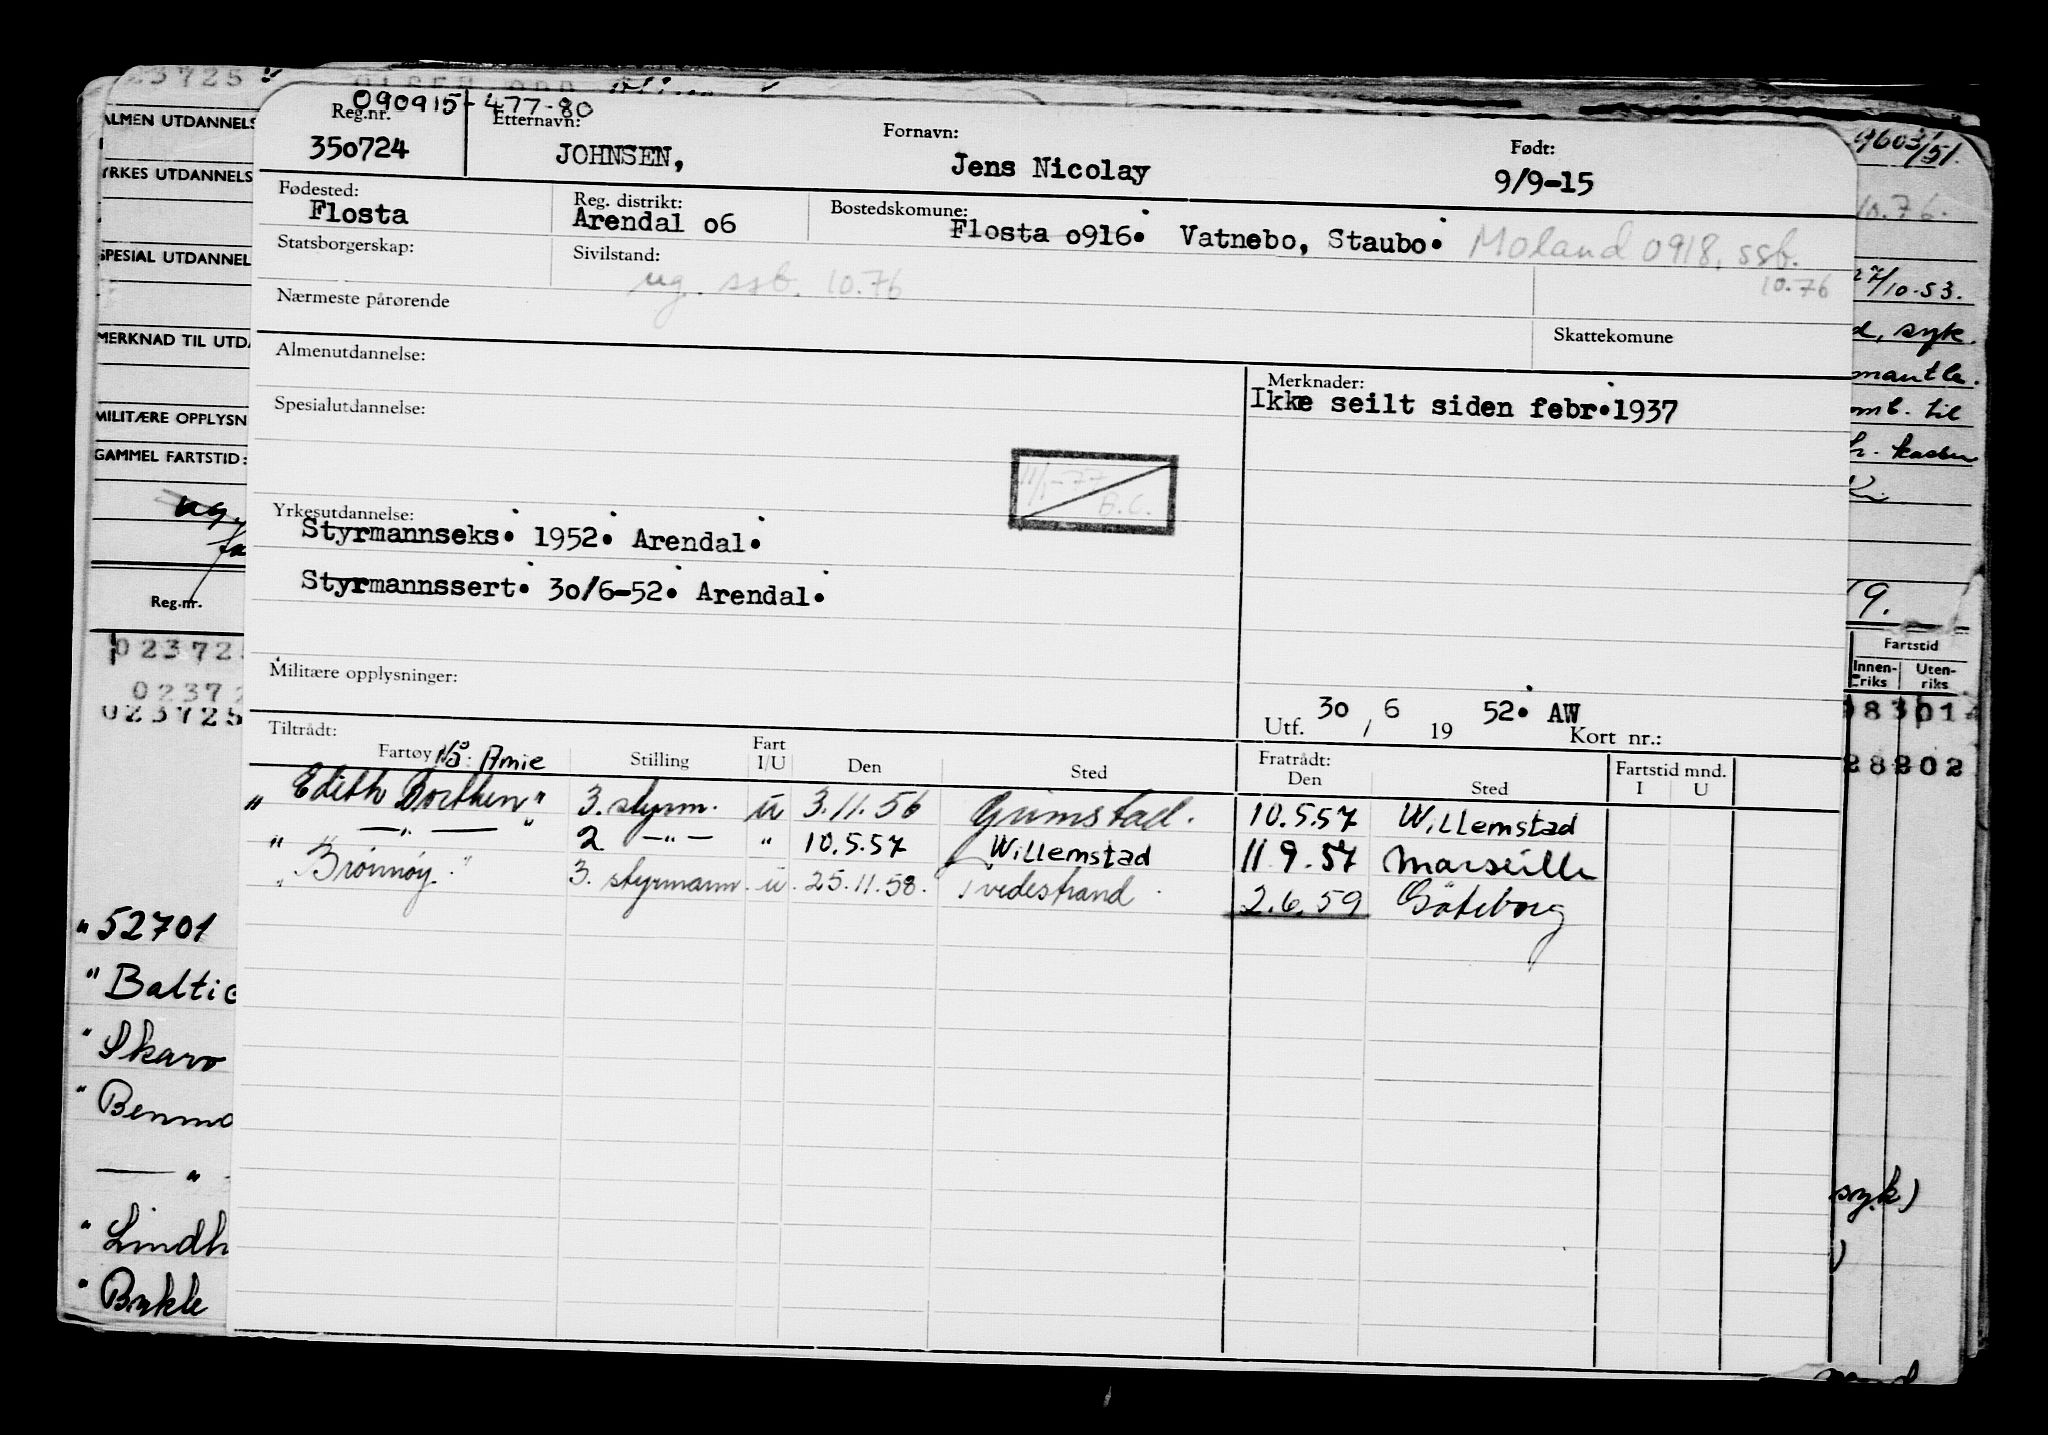 023725
090915-477-80
ALMEN UTDANNELS
YRKES UTDANNELS
SPESIAL UTDANNEL
MERKNAD TIL UTDA
MILITÆRE OPPLYSN
GAMMEL FARTSTID:
ug.
Reg.nr.
023725
0237
023725
" 52701
" Baltic
" Skaro
" Benmo
— " —
" Lindh
" Bykle
Reg.nr. Etternavn: Fornavn: Født:
350724 JOHNSEN, Jens Nicolay 9/9-15
Fødested: Reg. distrikt: Bostedskomune:
Flosta Arendal o6 Flosta o916. Vatnebo, Staubo. Moland 0918, ssb.
10.76
Statsborgerskap: Sivilstand:
ug. ssb. 10.76
Nærmeste pårørende
Skattekomune
Almenutdannelse:
Merknader:
Ikke seilt siden febr.1937
Spesialutdannelse:
11/1-77
B.C.
Yrkesutdannelse:
Styrmannseks. 1952. Arendal.
Styrmannssert. 30/6-52. Arendal.
Militære opplysninger:
Utf. 30 / 6 19 52. AW Kort nr.:
Tiltrådt: Fratrådt: Fartstid mnd.
Fartøy Nå: Amie Stilling Fart I/U Den Sted Den Sted I U
" Edith Borthen" 3. styrm. u 3.11.56 Grimstad. 10.5.57 Willemstad
" — " — " 2 — " — " 10.5.57 Willemstad 11.9.57 Marseille
" Brønnøy." 3. styrmann. u. 25.11.58. Tvedestrand. 2.6.59 Göteborg
9603/51.
10.76.
27/10-53.
d, syk.
mantle.
omb. til
19.
Fartstid
Innenriks Utenriks
28202
syk)